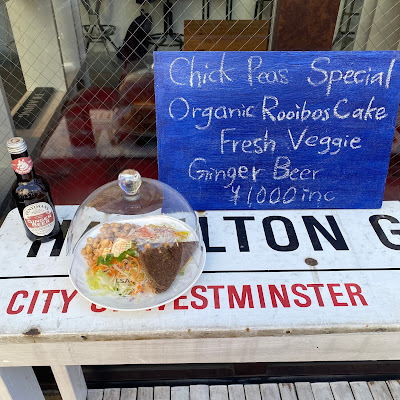 Chick Peas Special
Organic Rooibos Cake
Fresh Veggie
Ginger Beer
¥1,000 inc
CITY OF WESTMINSTER